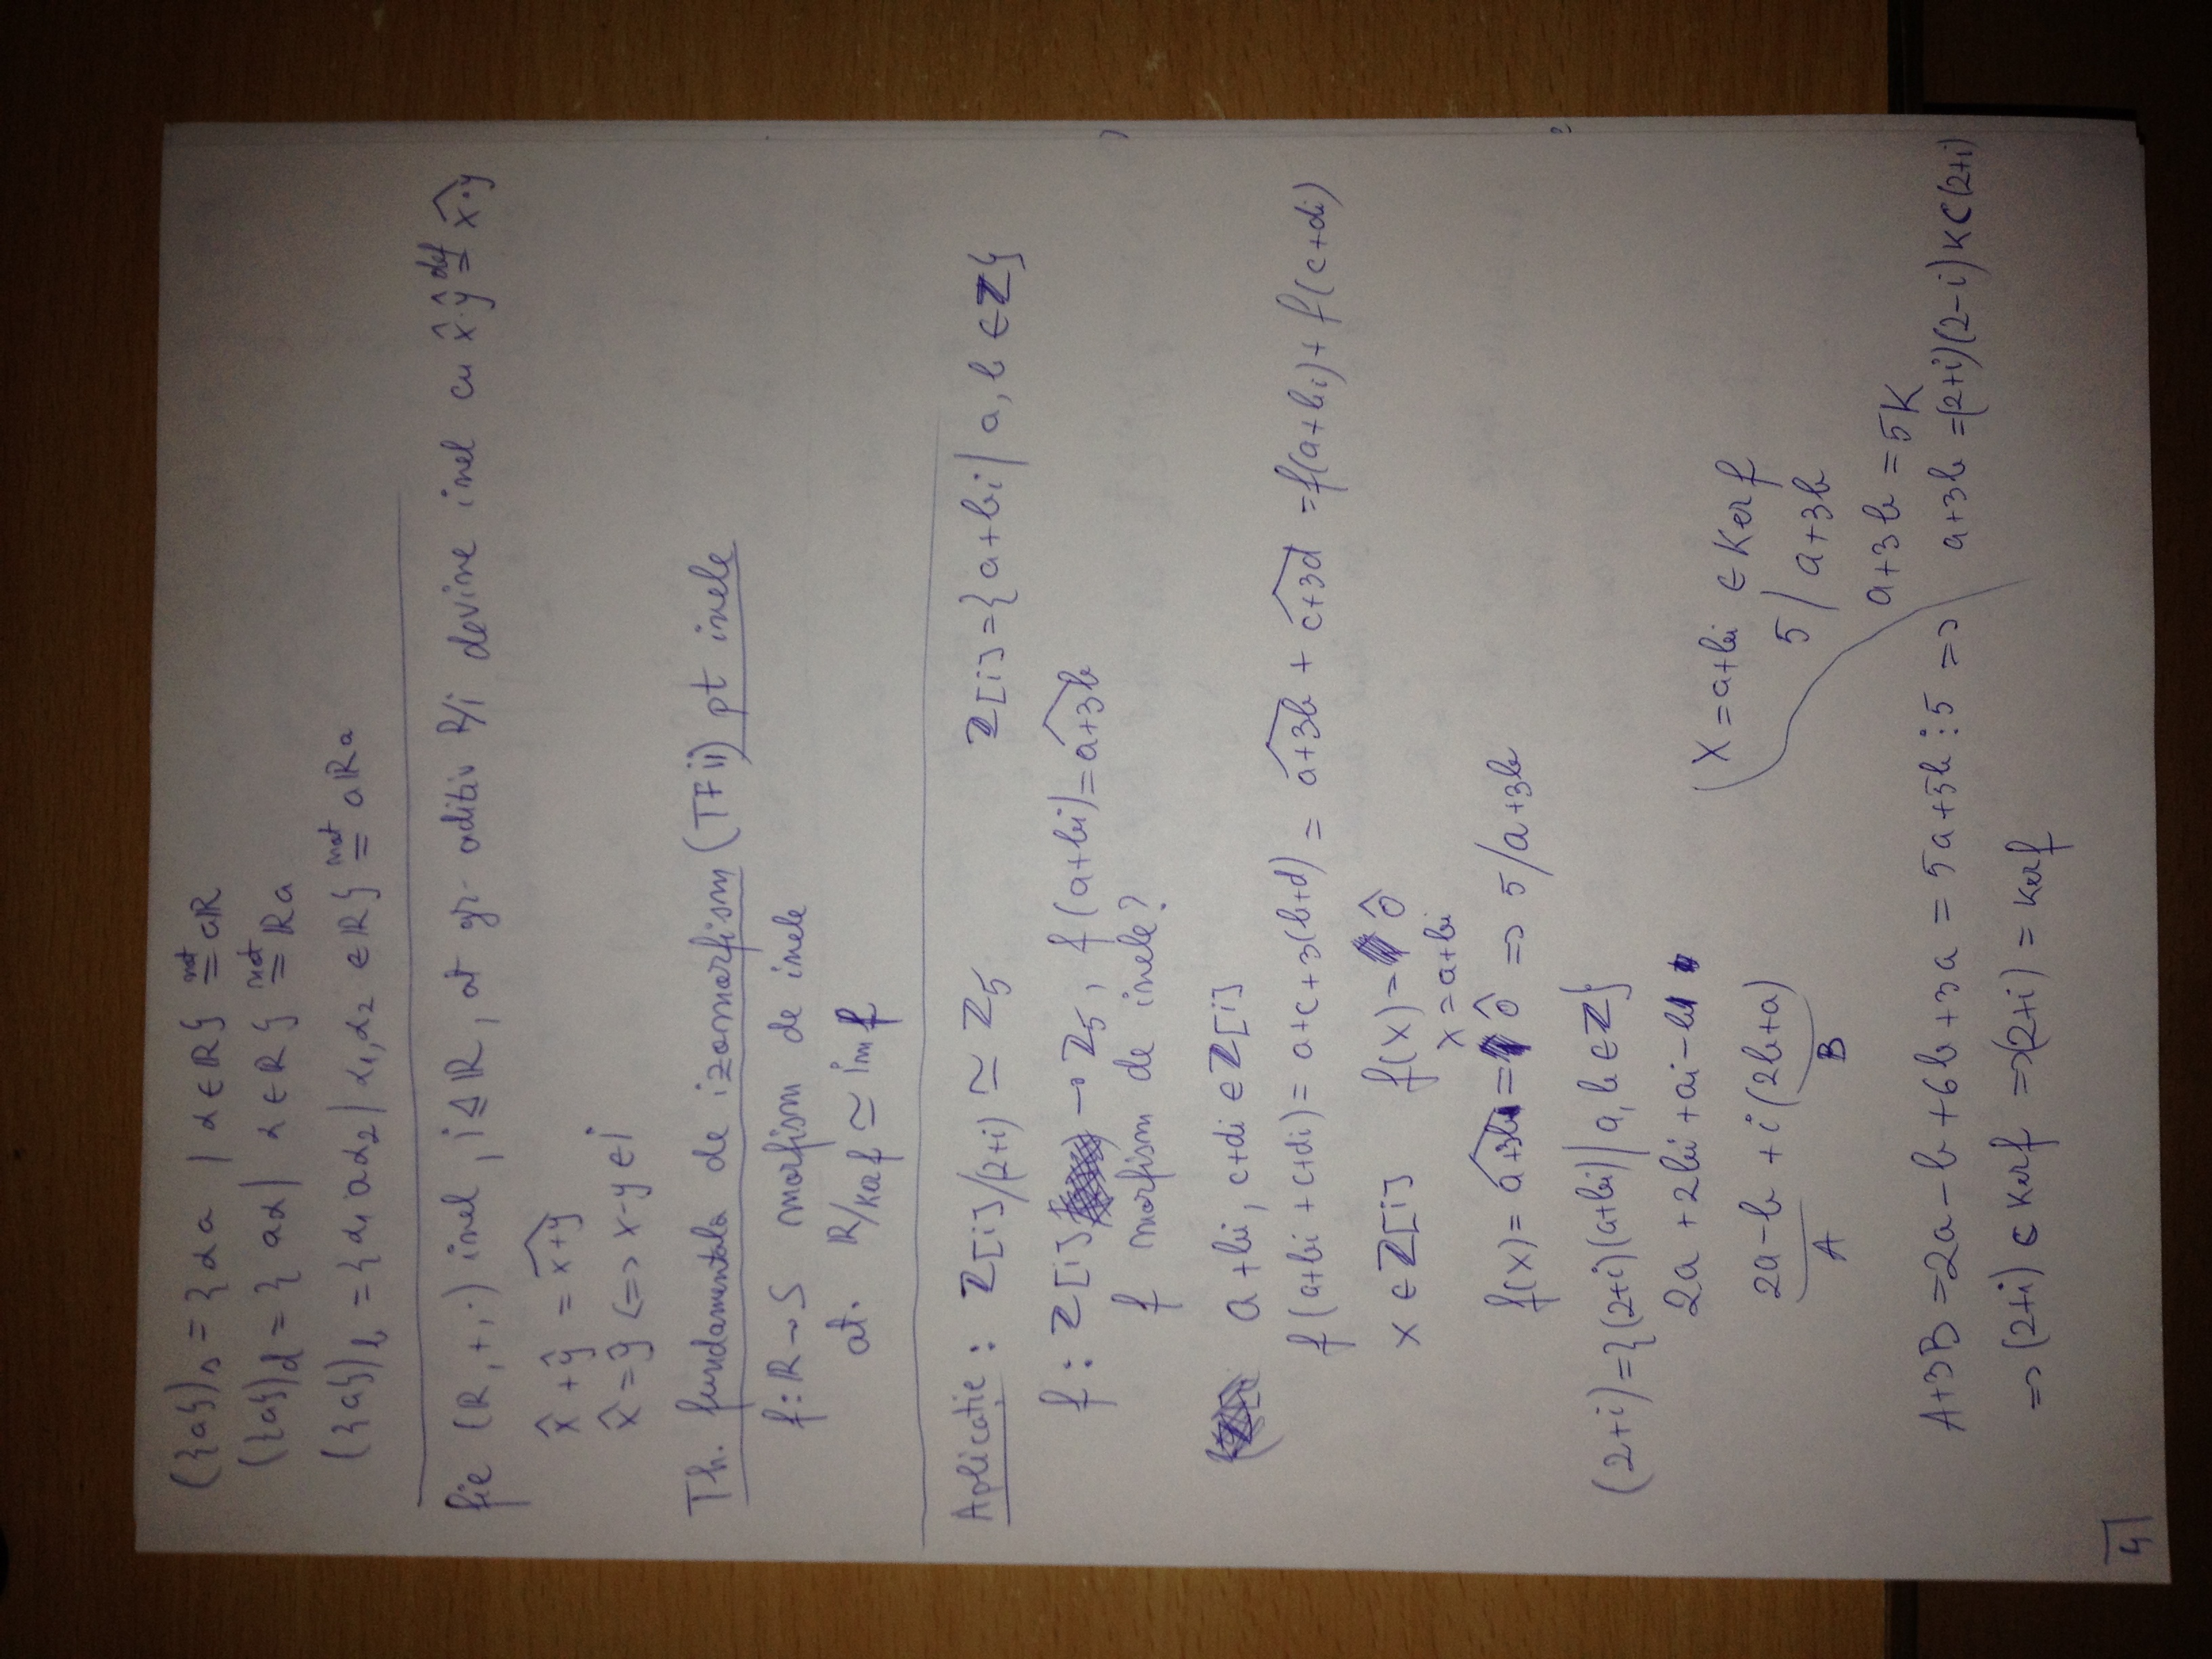 ({a})s = {αa | α∈R} not= aR
({a})d = {aα | α∈R} not= Ra
({a})b = {α₁aα₂ | α₁,α₂ ∈R} not= aRa
fie (R,+,·) inel, i⊴R, at gr. aditiv R/i devine inel cu x̂·ŷ def= \widehat{x·y}
x̂+ŷ = \widehat{x+y}
x̂=ŷ <=> x-y∈i
Th. fundamentala de izomorfism (TFii) pt inele
f:R→S morfism de inele
at. R/Ker f ≃ im f
Aplicație: Z[i]/(2+i) ≃ Z₅ Z[i]={a+bi | a,b∈Z}
f: Z[i] → Z₅, f(a+bi)=\widehat{a+3b}
f morfism de inele?
a+bi, c+di ∈Z[i]
f(a+bi+c+di)= a+c+3(b+d) = \widehat{a+3b} + \widehat{c+3d} =f(a+bi)+f(c+di)
x∈Z[i] f(x)= 0̂
x=a+bi
f(x)= \widehat{a+3b} = 0̂ => 5/a+3b
(2+i)={(2+i)(a+bi) | a,b∈Z}
2a+2bi+ai-b
2a-b +i(2b+a)
A B
A+3B=2a-b+6b+3a = 5a+5b⋮5 =>
=>(2+i) ⊂ Ker f =>(2+i) = Ker f
X=a+bi ∈ Ker f
5/a+3b
a+3b=5K
a+3b=(2+i)(2-i)K⊂(2+i)
4